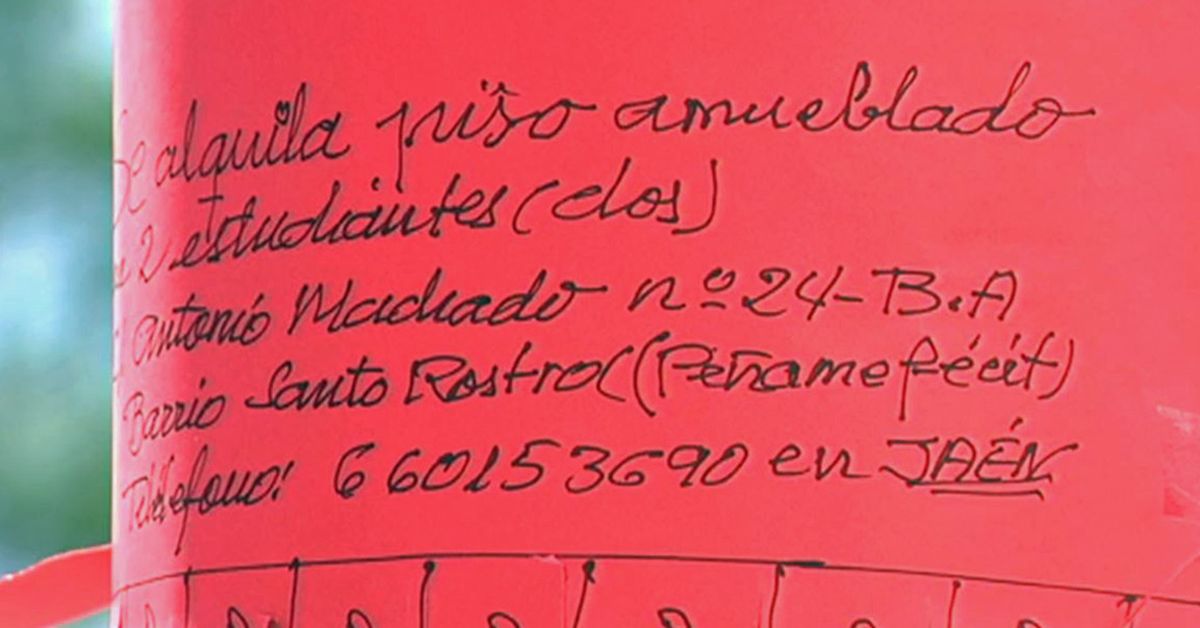 Se alquila piso amueblado
2 estudiantes (dos)
Antonio Machado nº 24-B.A
Barrio Santo Rostro((Peñamefécit)
Teléfono: 660153690 en JAÉN